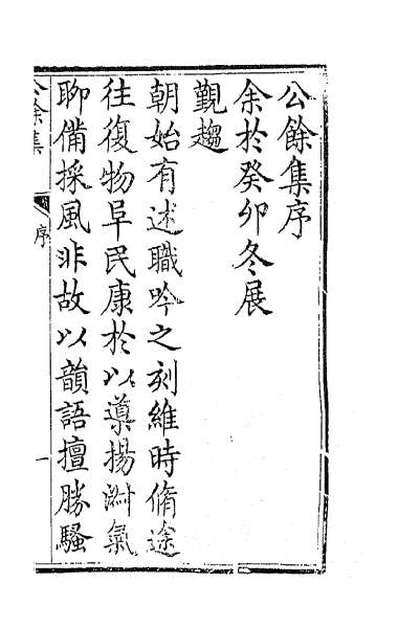 公餘集序
余於癸卯冬展
覲趨
朝始有述職吟之刻維時脩途
往復物阜民康於以導揚淑氣
聊備採風非故以韻語擅勝騷
公餘集
序
一